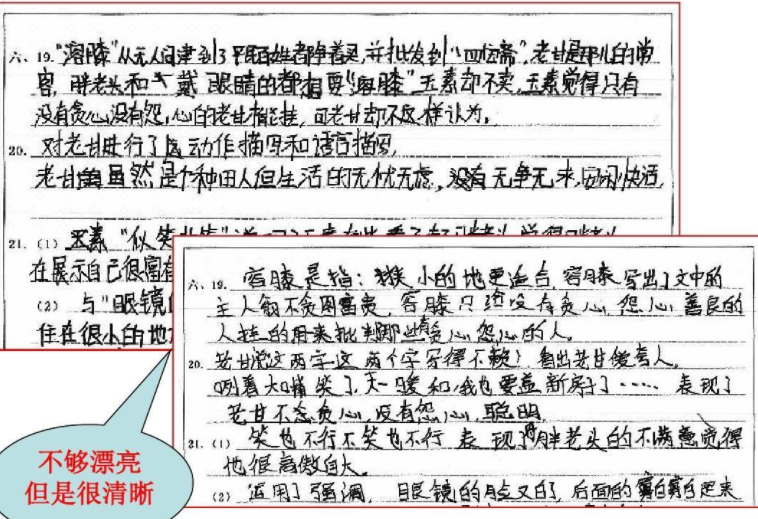 六、19. "容膝"从无人问津到了平民百姓都争着灵,并批发到"四坛斋",老甘是那儿的常
客,胖老头和 戴眼睛的都想要"容膝"玉素却不卖,玉素觉得只有
没有贪心没有怨,心的老甘相挂,可老甘却不这样认为。
20. 对老甘进行了 动作描写和语言描写,
老甘 虽然是个种田人但生活的无忧无虑, 无争无求,安闲快活,
21. (1) 玉素"似笑非笑"
在展示自己很富有
(2) 与"眼镜
住在很小的地
六、19. 容膝是指: 小的地更适合,容膝写出了文中的
主人翁不贪图富贵,容膝只 没有贪心,怨心,善良的
人挂的用来批判那些有贪心,怨心的人。
20. 老甘说这两字这两个字写得不赖! 看出老甘 人。
咧着大嘴笑了,天一暖和,我也要盖新房了…… 表现了
老甘不 贪心,没有怨心,聪明
21. (1) 笑也不行不笑也不行 表现了胖老头的不满意觉得
他很高傲自大。
(2) 运用了强调, 眼镜的脸又白了,后面的 白 起来
不够漂亮
但是很清晰